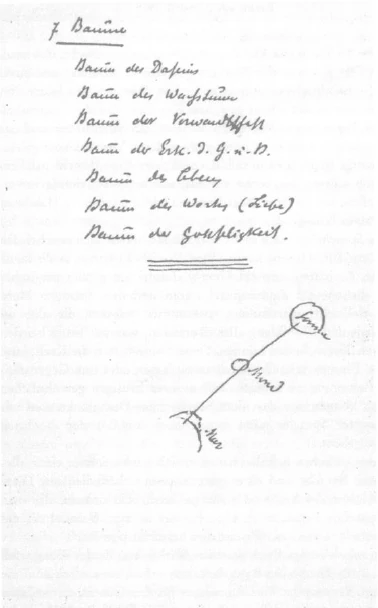 7 Bäume
Baum des Daseins
Baum des Wachstums
Baum der Verwandtschaft
Baum der Erk. d. G. u. B.
Baum des Lebens
Baum des Wortes (Liebe)
Baum der Gottseligkeit.
Sonne
Mond